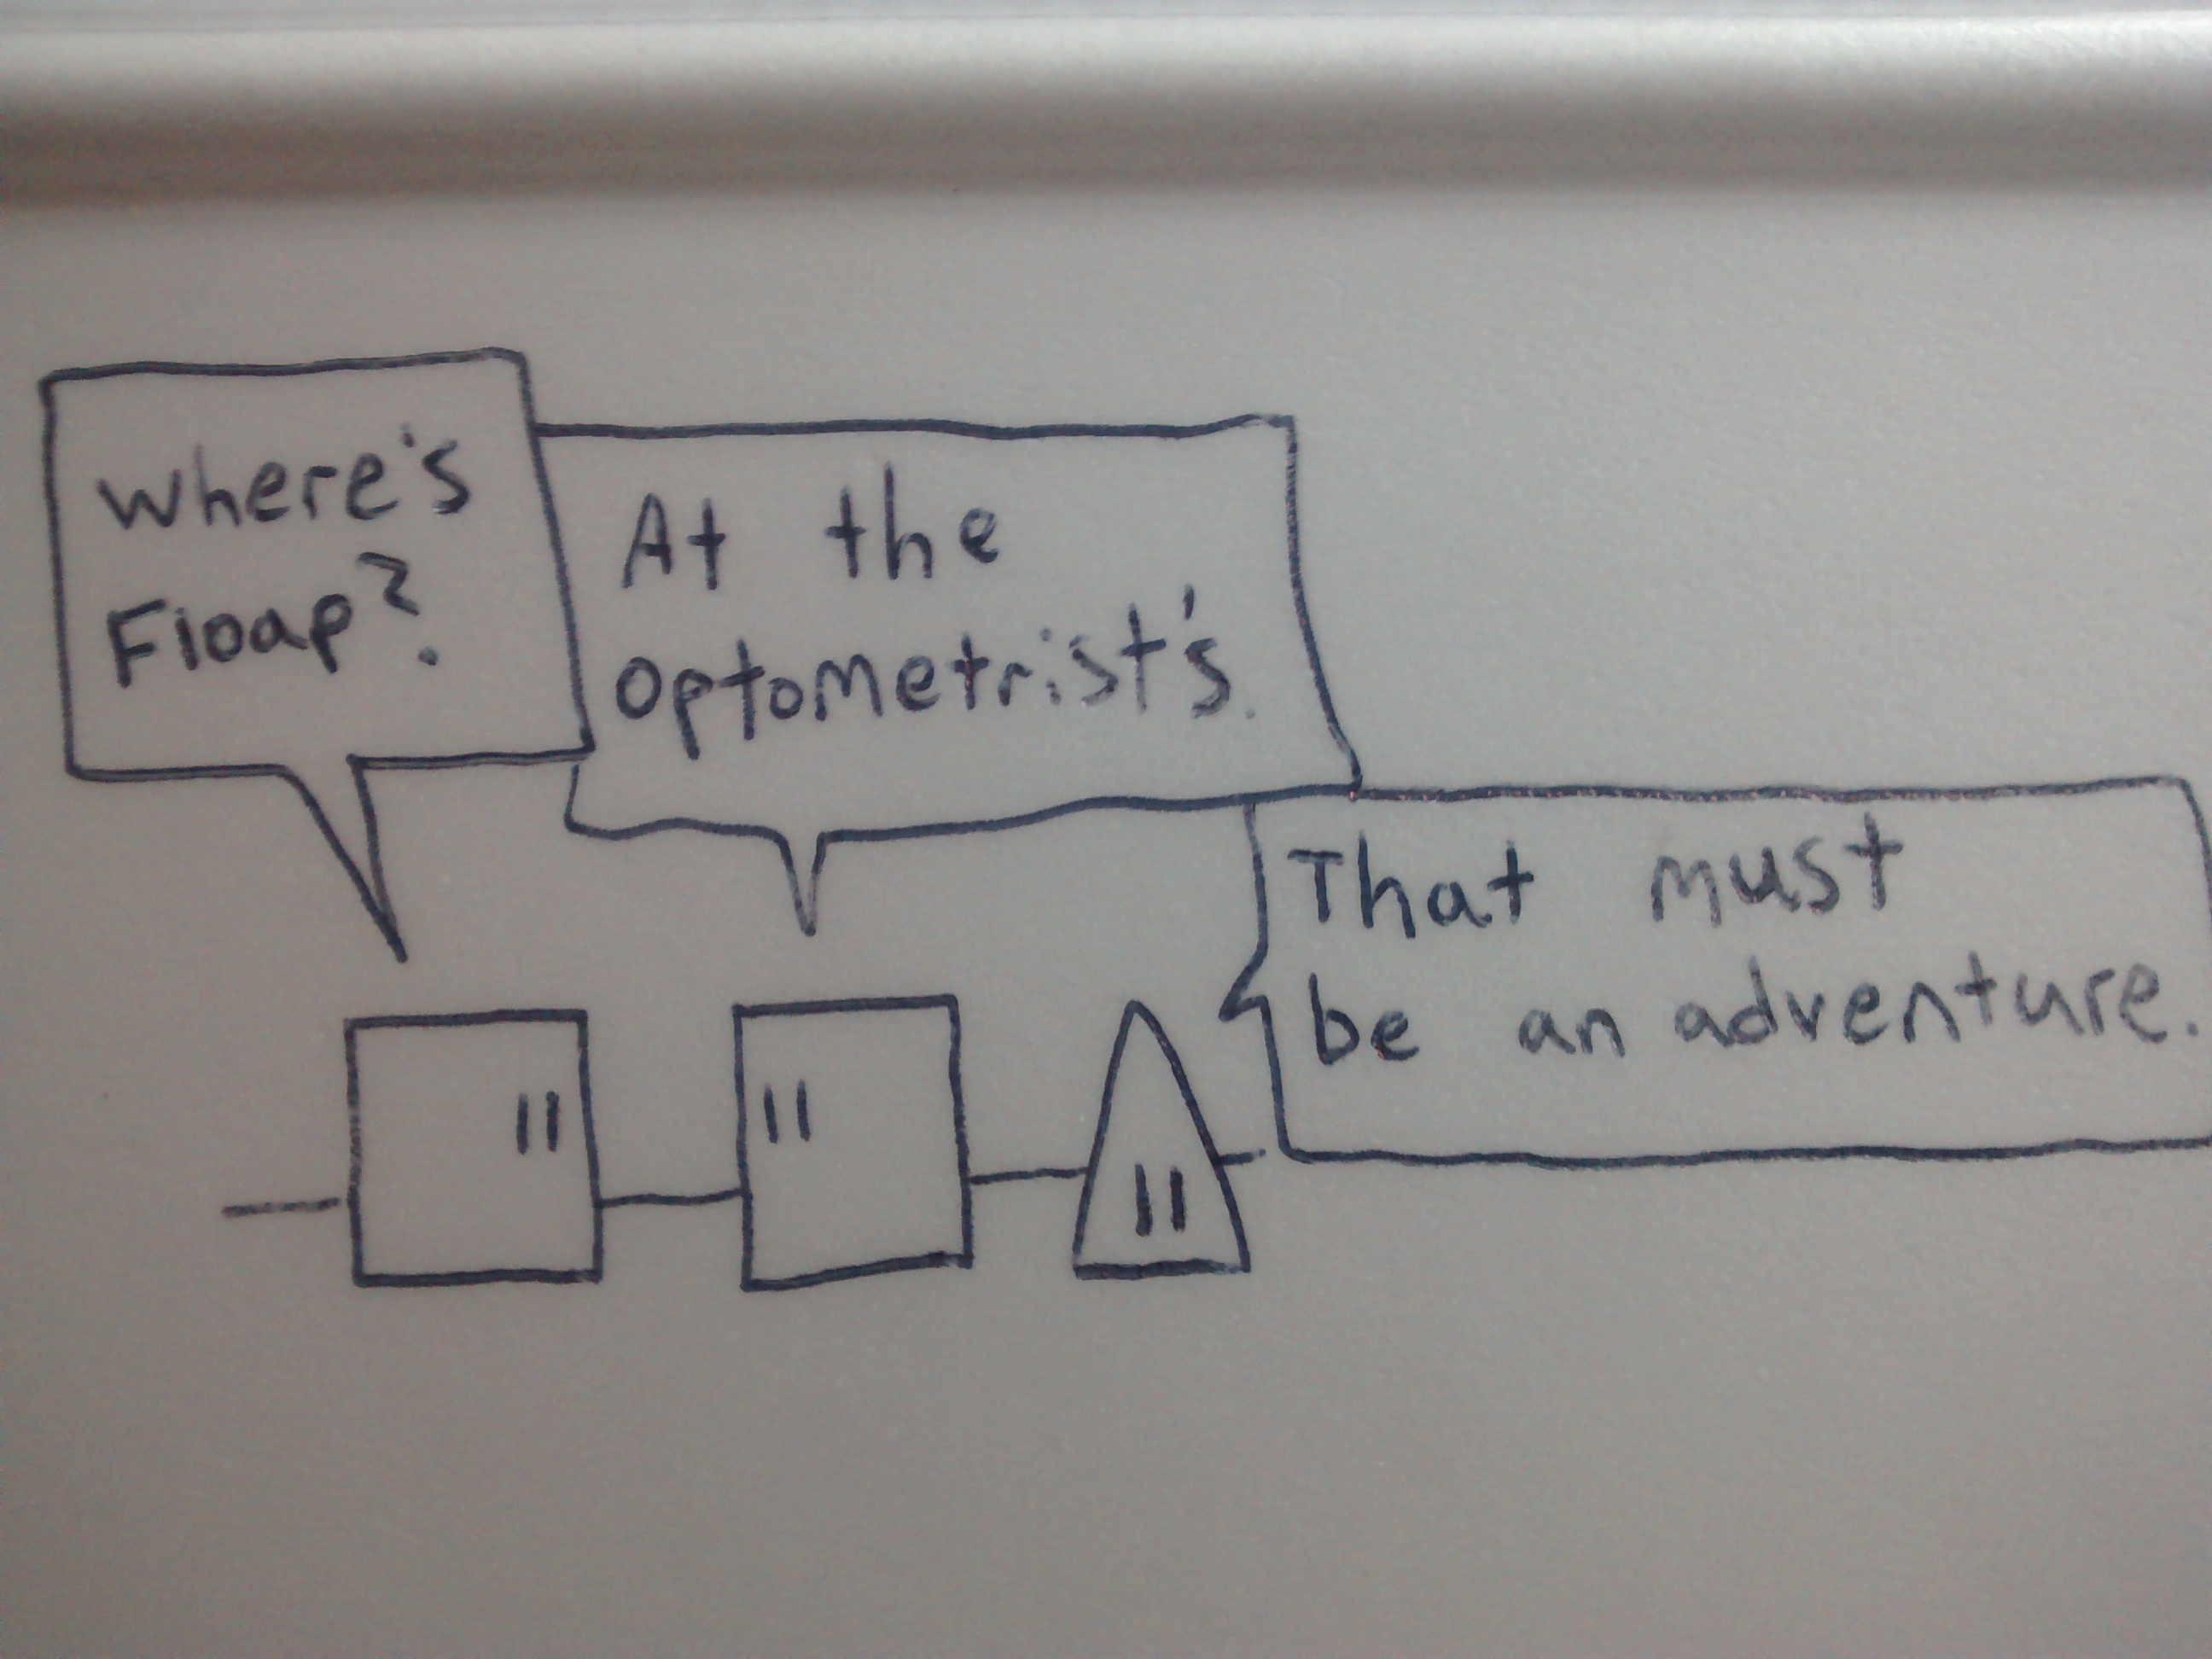 Where's
Floap?
At the
optometrist's.
That must
be an adventure.